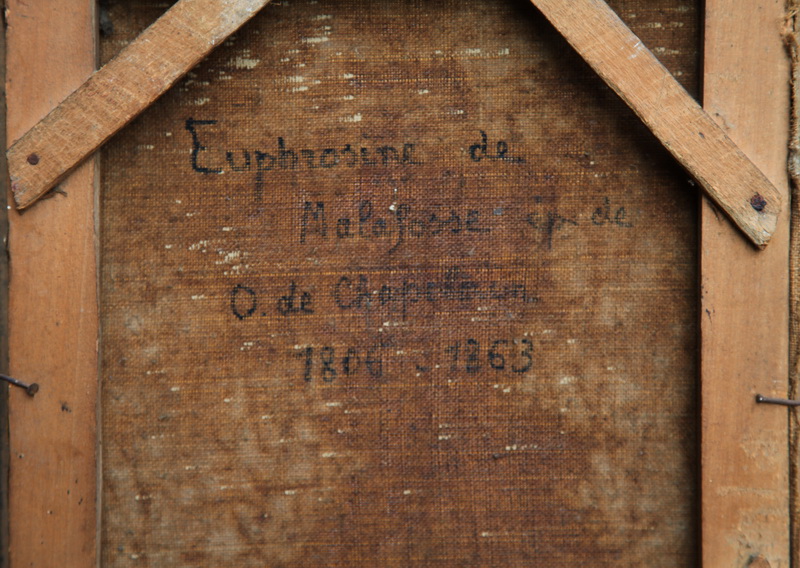 Euphrosine de
Malafosse ep. de
O. de Chapelain
1806 - 1863